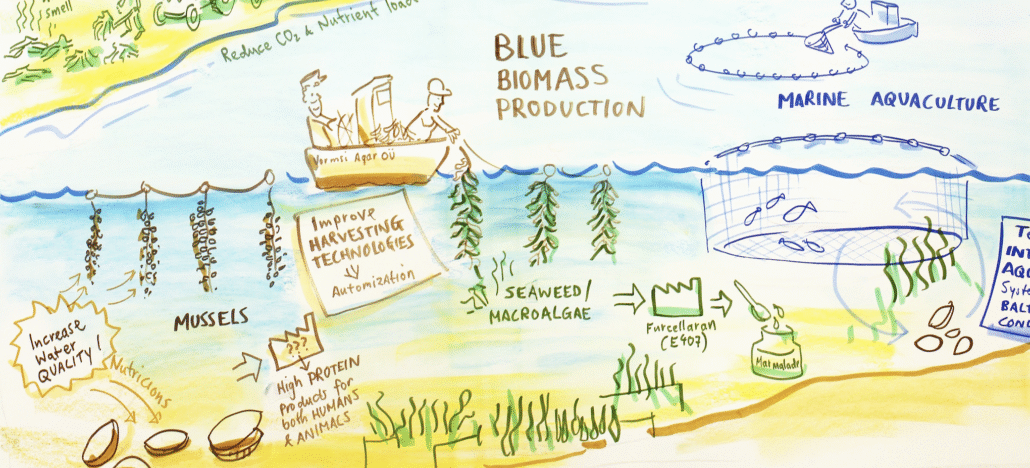 smell
Reduce CO2 & Nutrient load
BLUE
BIOMASS
PRODUCTION
MARINE AQUACULTURE
Vormsi Agar OÜ
Improve
HARVESTING
TECHNOLOGIES
Automization
MUSSELS
Increase
Water
QUALITY!
Nutricions
???
High PROTEIN
Products for
both HUMANS
& ANIMALS
SEAWEED/
MACROALGAE
Furcellaran
(E407)
Marmalade
INT
AQU
Syste
BALT
COND